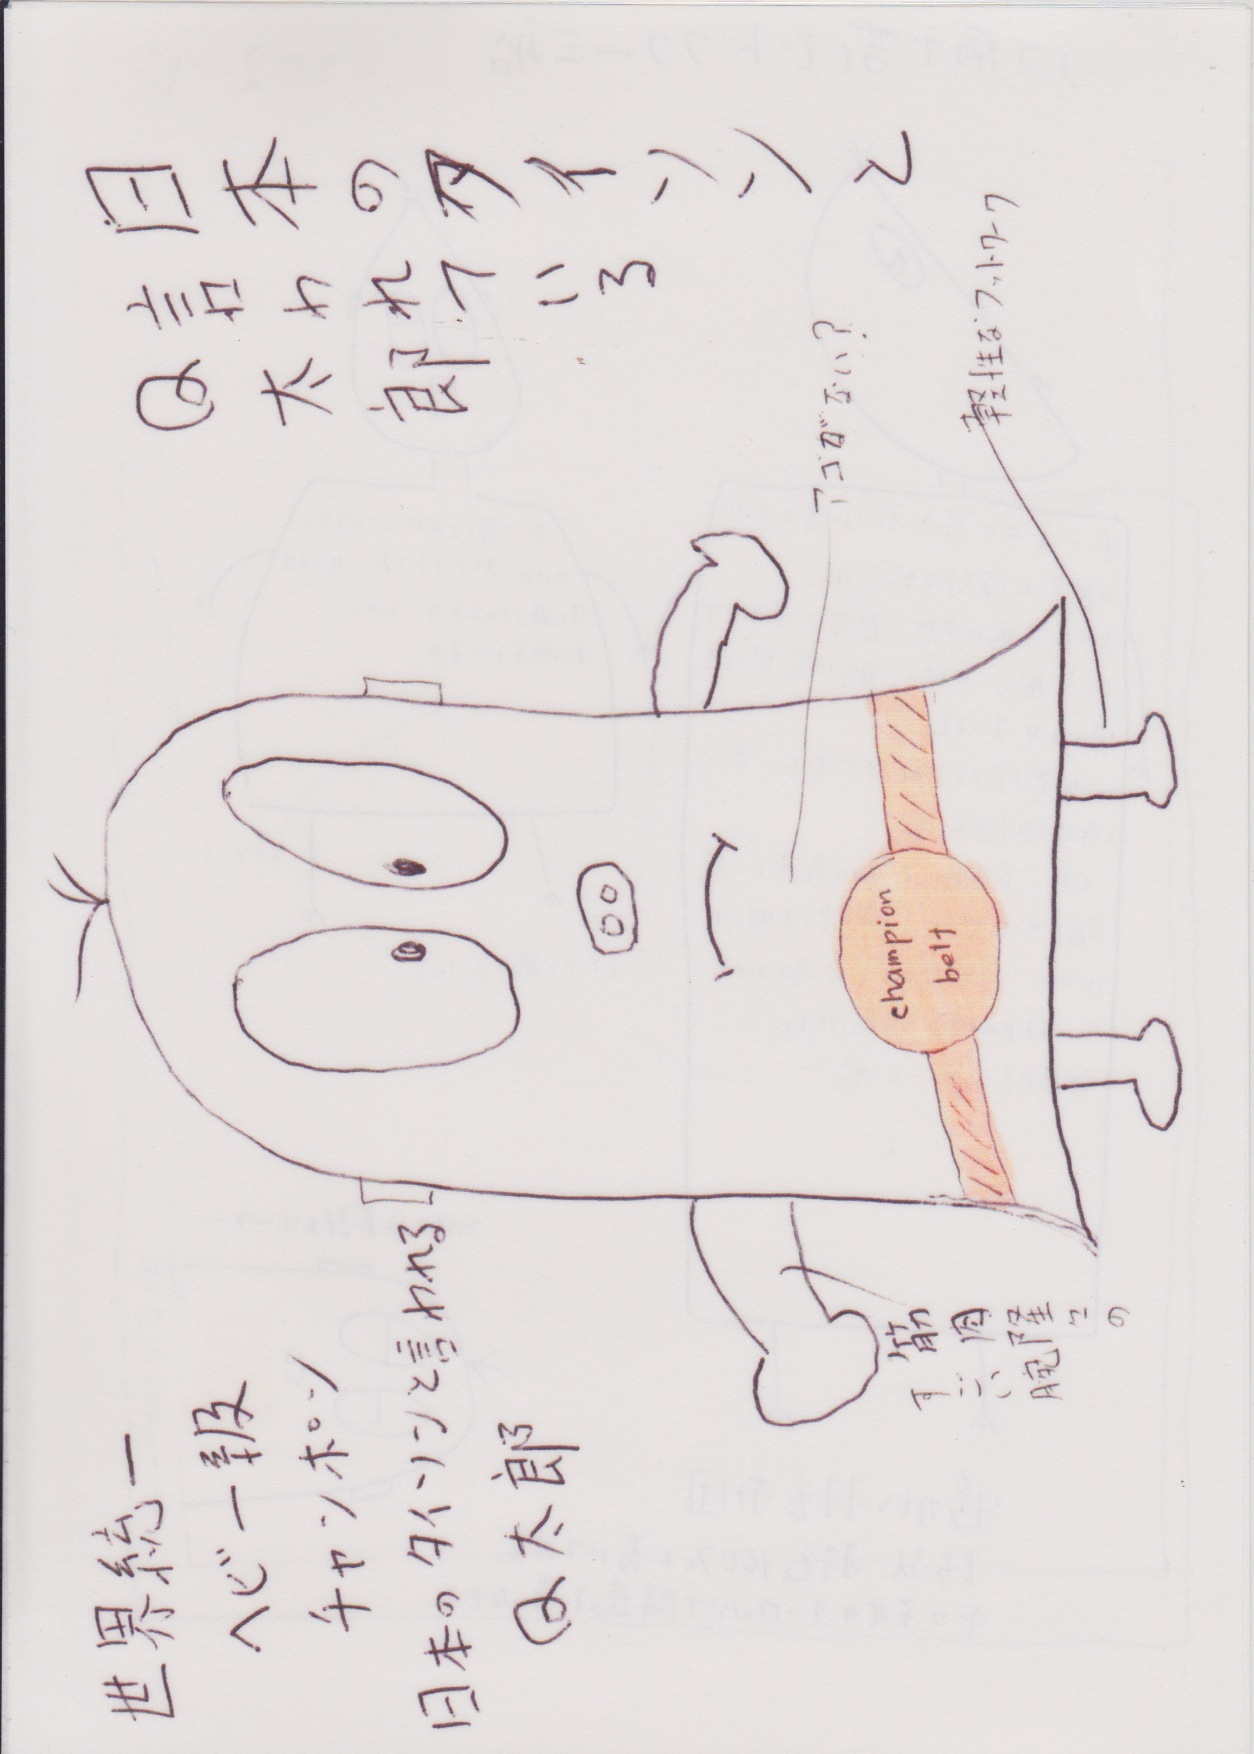 世界統一
ヘビー級
チャンポン
日本のタイソンと言われる
Q太郎
日本のタイソンと
言われている
Q太郎
アゴがない?
軽性なフットワーク
champion
belt
筋肉隆々の
すごい腕